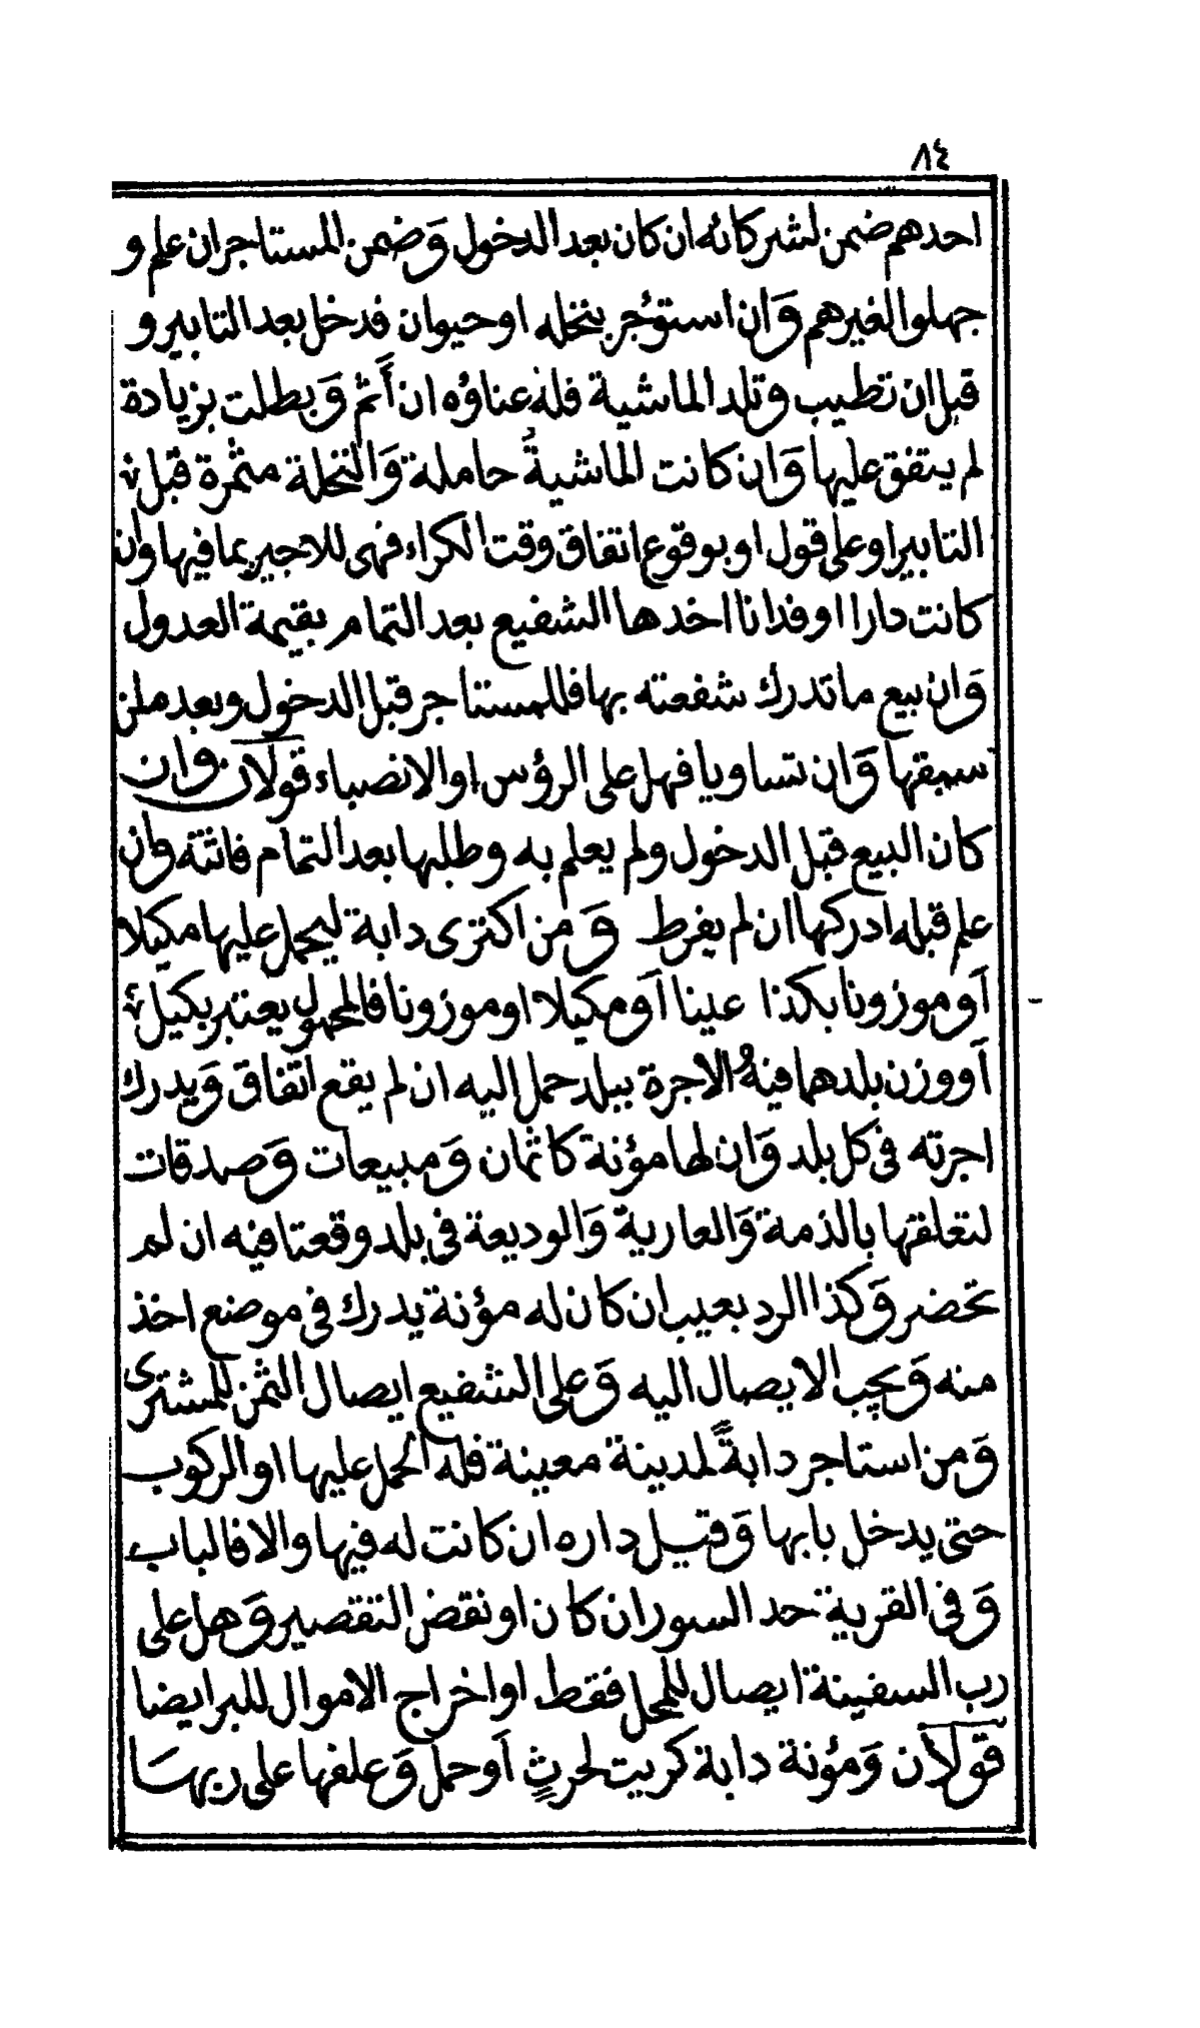 ٨٤
احدهم ضمن لشركائه ان كان بعد الدخول وَضمن المستاجر ان علم و
جهلوا لغيرهم وَان استوُجر بنخله او حيوان فدخل بعد التابير و
قبل ان تطيب وتلد الماشية فله عناؤه ان أَتم وَبطلت بزيادة
لم يتفق عليها وَان كانت الماشيةُ حاملة وَالنخلة مثمرة قبل
التابير او على قول او بوقوع اتفاق وقت الكراء فهى للاجير بما فيها وان
كانت دارا او فدانا اخدها الشفيع بعد التمام بقيمة العدول
وَان بيع ما تدرك شفعته بها فللمستاجر قبل الدخول وبعد ملن
سبقها وَان تساويا فهل على الرؤس او الانصباء قولان وان
كان البيع قبل الدخول ولم يعلم به وطلبها بعد التمام فاتته وان
علم قبله ادركها ان لم يفرط وَمن اكترى دابة ليحمل عليها مكيلا
أَو موزونا بكذا عينا أَو مكيلا او موزونا فالمحمول يعتبر بكيل
أَو وزن بلدهما فيهُ والاجرة ببلد حمل اليه ان لم يقع اتفاق وَيدرك
اجرته فى كل بلد وَان لها مؤنة كاثمان وَمبيعات وَصدقات
لتعلقها بالذمة وَالعارية وَالوديعة فى بلد وقعتا فيه ان لم
تحضر وَكذا الرد بعيب ان كان له مؤنة يدرك فى موضع اخذ
منه وَيجب الايصال اليه وَعلى الشفيع ايصال الثمن للمشترى
وَمن استاجر دابةً لمدينة معينة فله الحمل عليها او الركوب
حتى يدخل بابها وَقيل داره ان كانت له فيها والا فالباب
وَفى القرية حد السور ان كان او نقض التقصير وَهل على
رب السفينة ايصال للمحل فقط او اخراج الاموال للبر ايضا
قولان وَمؤنة دابة كريت لحرثٍ أَو حمل وَعلفها على ربها